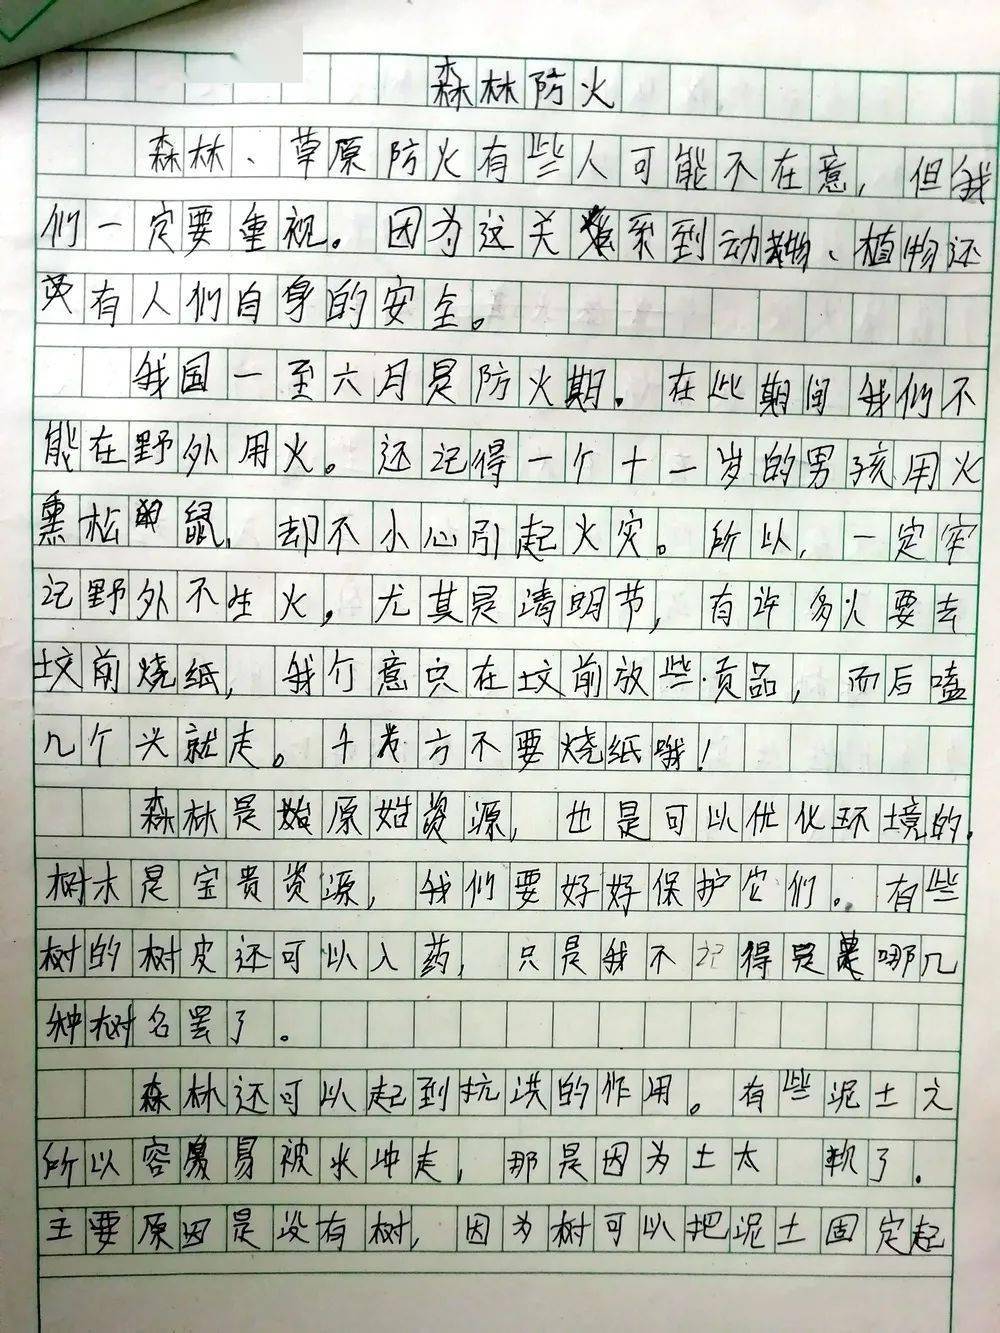 森林防火
森林、草原防火有些人可能不在意，但我
们一定要重视。因为这关系到动物、植物还
有人们自身的安全。
我国一至六月是防火期。在此期间我们不
能在野外用火。还记得一个十一岁的男孩用火
熏松鼠，却不小心引起火灾。所以，一定牢
记野外不生火，尤其是清明节，有许多人要去
坟前烧纸，我介意只在坟前放些贡品，而后嗑
几个头就走。千万不要烧纸哦！
森林是原始资源，也是可以优化环境的。
树木是宝贵资源，我们要好好保护它们。有些
树的树皮还可以入药，只是我不记得是哪几
种树名罢了。
森林还可以起到抗洪的作用。有些泥土之
所以容易被水冲走，那是因为土太 软了。
主要原因是没有树，因为树可以把泥土固定起